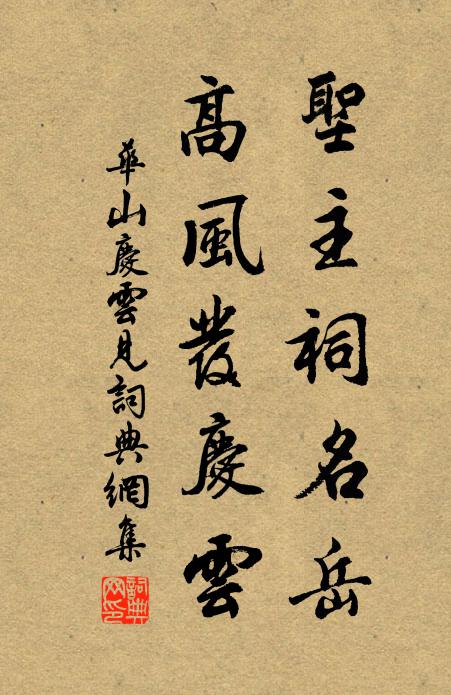 聖主祠名岳
高風發慶雲
華山慶雲見詞典網集
詞典網印